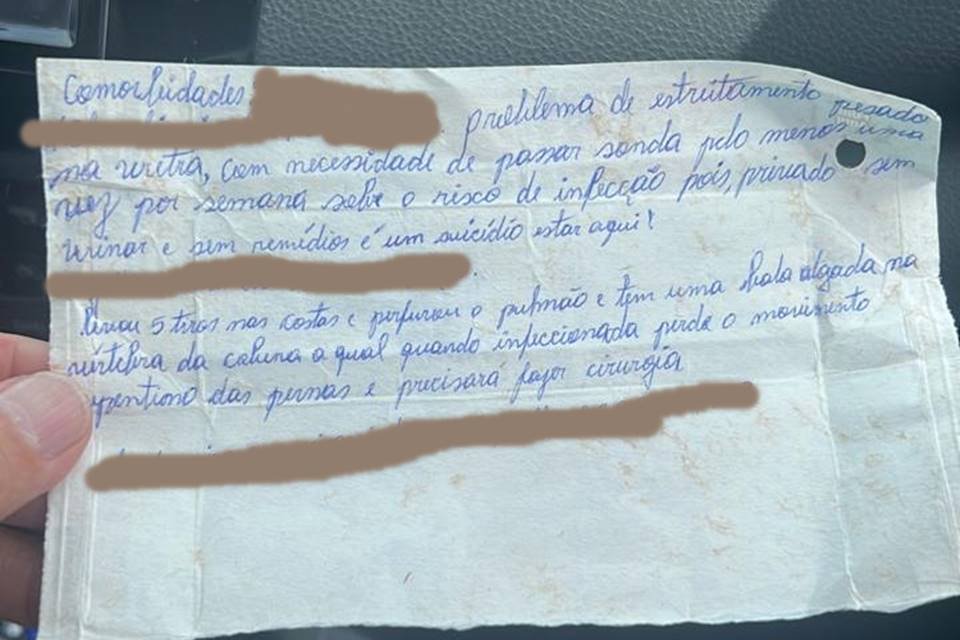 Comorbidades
problema de estreitamento pesado
na uretra, com necessidade de passar sonda pelo menos uma
vez por semana sobe o risco de infecção pois, privado sem
urinar e sem remédios é um suicídio estar aqui!
levou 5 tiros nas costas e perfurou o pulmão e tem uma bala algada na
vértebra da coluna a qual quando infeccionada perde o movimento
repentino das pernas e precisará fazer cirurgia